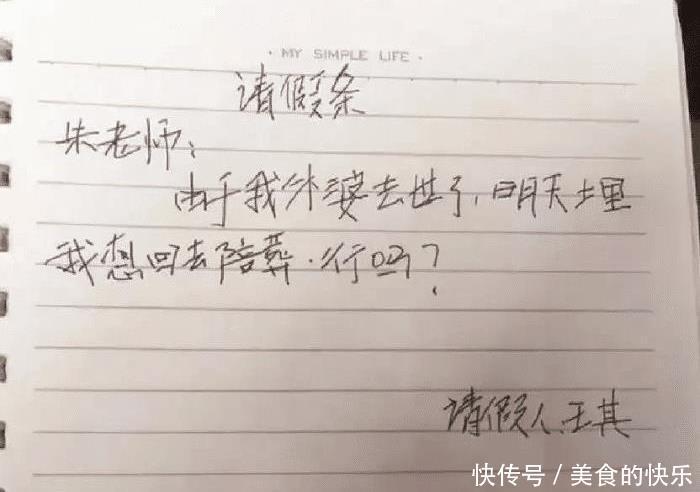 · MY SIMPLE LIFE ·
请假条
朱老师：
由于我外婆去世了，明天土埋
我想回去陪葬．行吗？
请假人．王其
快传号 / 美食的快乐